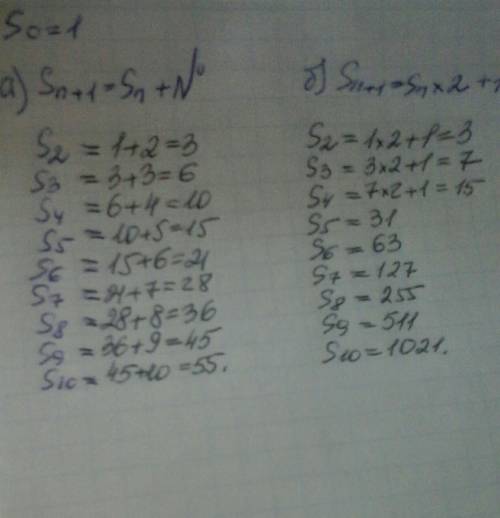 S₀=1
а) Sₙ₊₁=Sₙ+N°
S₂ = 1+2=3
S₃ = 3+3=6
S₄ = 6+4=10
S₅ = 10+5=15
S₆ = 15+6=21
S₇ = 21+7=28
S₈ = 28+8=36
S₉ = 36+9=45
S₁₀ = 45+10=55.
б) Sₙ₊₁=Sₙ×2+
S₂=1×2+1=3
S₃=3×2+1=7
S₄=7×2+1=15
S₅=31
S₆=63
S₇=127
S₈=255
S₉=511
S₁₀=1021.